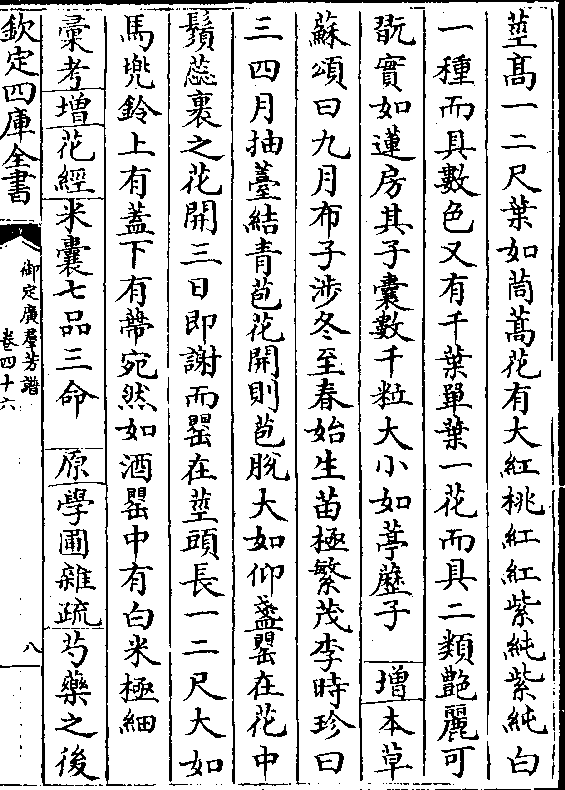 莖髙一二尺葉如茼蒿花有大紅桃紅紅紫純紫純白
一種而具數色又有千葉單葉一花而具二類艶麗可
翫實如蓮房其子囊數千粒大小如葶藶子　增本草
蘇頌曰九月布子涉冬至春始生苗極繁茂李時珍曰
三四月抽薹結青苞花開則苞脫大如仰盞罌在花中
鬚蕊裹之花開三日即謝而罌在莖頭長一二尺大如
馬兜鈴上有蓋下有蔕宛然如酒罌中有白米極細
彙考增花經米囊七品三命　原學圃雜疏芍藥之後
欽定四庫全書
御定廣羣芳譜
卷四十六
八